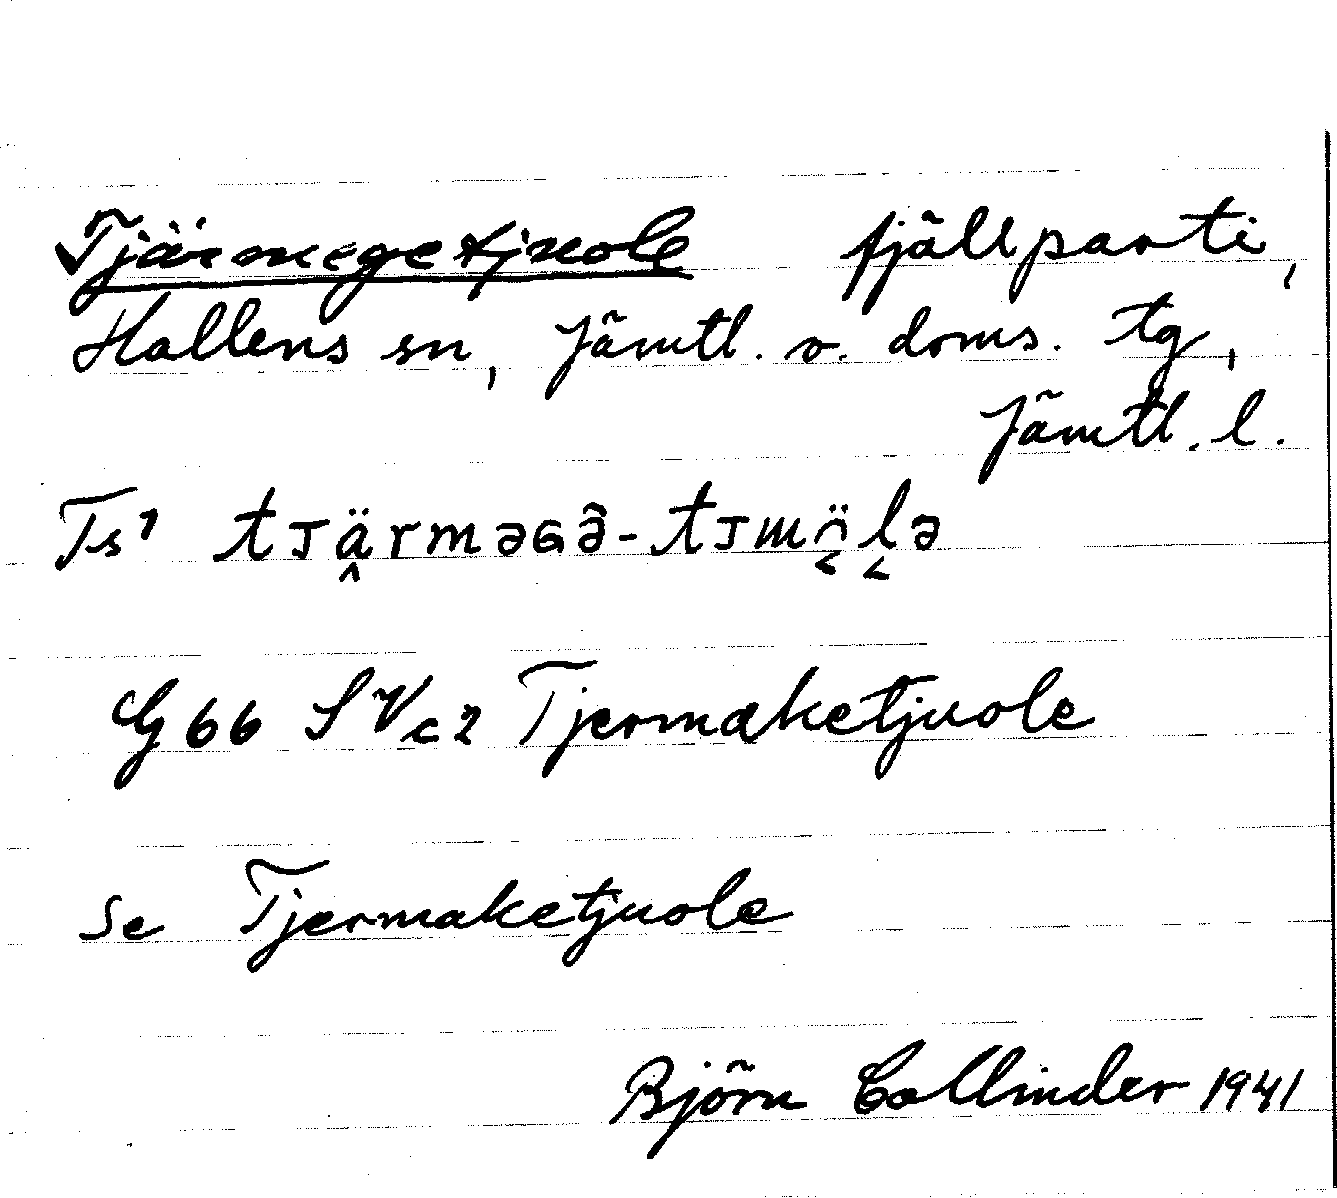 Tjärmegetjuole fjällparti,
Hallens sn, Jämtl. v. doms. tg,
Jämtl. l.
Ts1 tᴊä̭rməɢə̂-tᴊɯö̜l̜ə
G66 SVc2 Tjermaketjuole
se Tjermaketjuole
Björn Collinder 1941